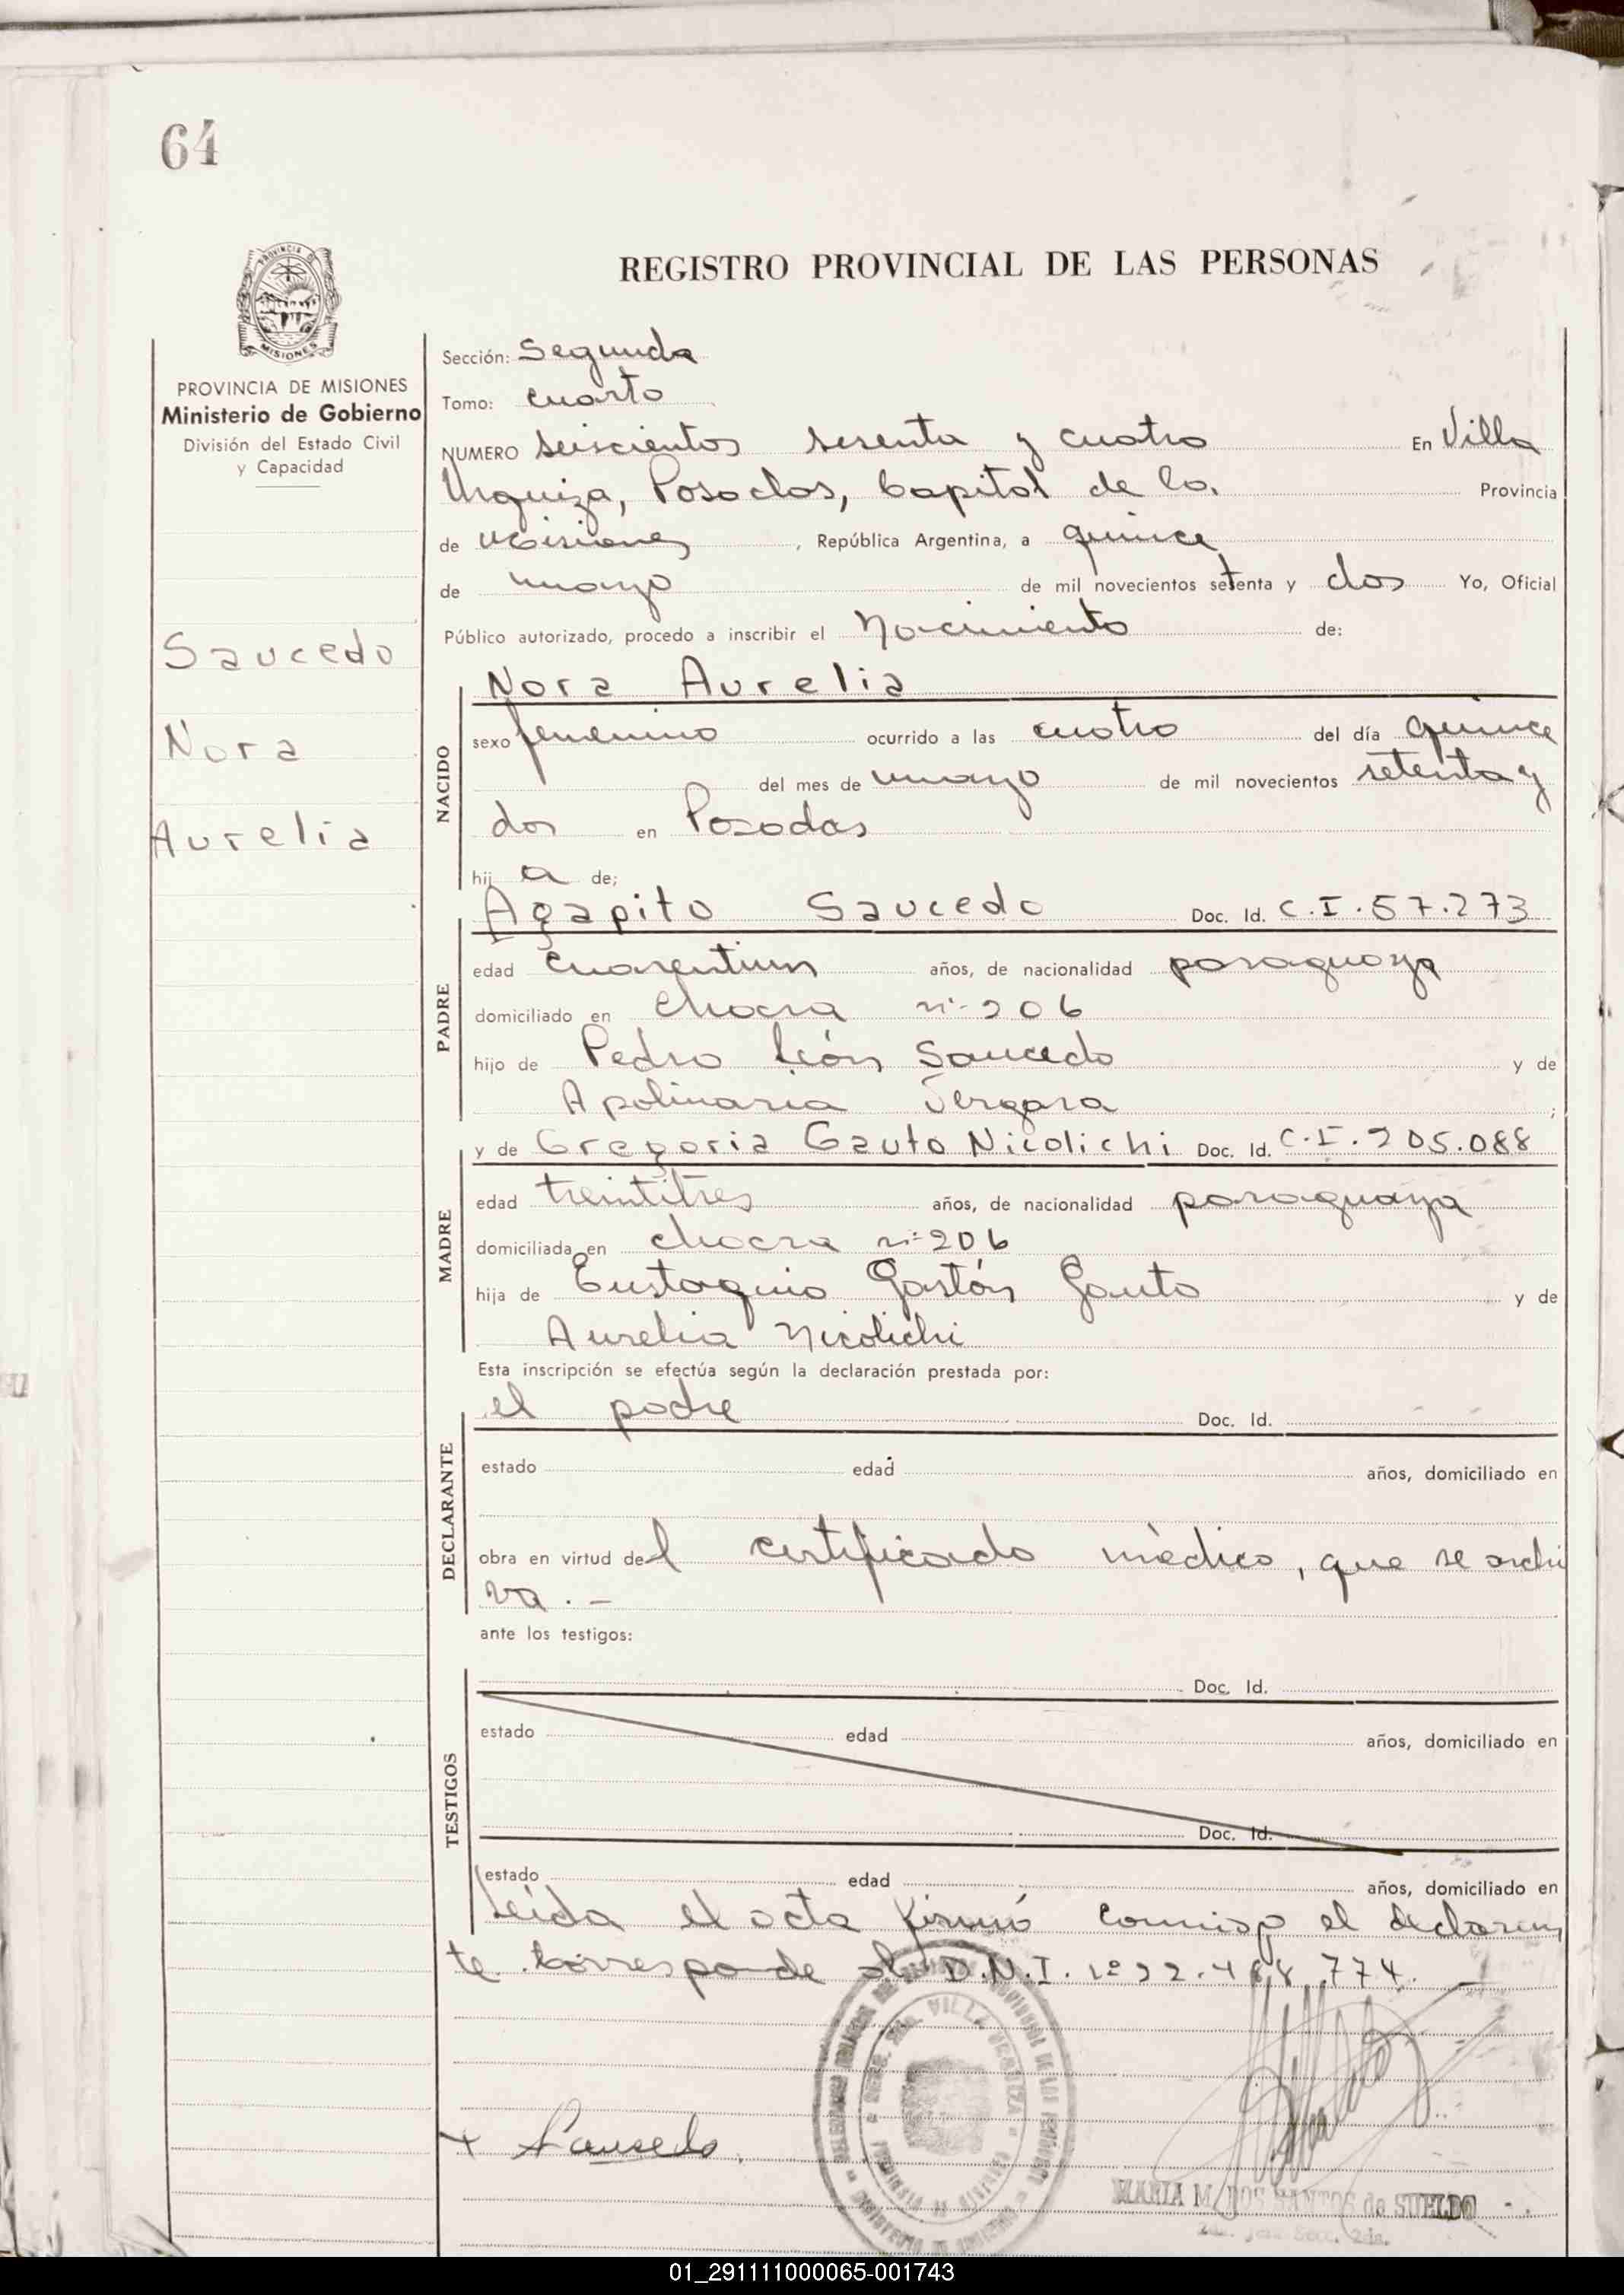 64
PROVINCIA DE
MISIONES
REGISTRO PROVINCIAL DE LAS PERSONAS
PROVINCIA DE MISIONES
Ministerio de Gobierno
División del Estado Civil
y Capacidad
Saucedo
Nora
Aurelia
Sección: Segunda
Tomo: cuarto
NUMERO seiscientos sesenta y cuatro En Villa
Urquiza, Posadas, Capital de la. Provincia
de Misiones, República Argentina, a quince
de mayo de mil novecientos setenta y dos Yo, Oficial
Público autorizado, procedo a inscribir el Nacimiento de:
Nora Aurelia
NACIDO
sexo femenino ocurrido a las cuatro del día quince
del mes de mayo de mil novecientos setenta y
dos en Posadas
hij a de;
Agapito Saucedo Doc. Id. C.I.57.273
PADRE
edad cuarentiun años, de nacionalidad paraguaya
domiciliado en chacra nº 206
hijo de Pedro León Saucedo y de
Apolinaria Vergara ;
y de Gregoria Gauto Nicolichi Doc. Id. C.I.205.088
MADRE
edad treintitres años, de nacionalidad paraguaya
domiciliada en chacra nº 206
hija de Eustaquio Gastón Gauto y de
Aurelia Nicolichi
Esta inscripción se efectúa según la declaración prestada por:
el padre Doc. Id.
DECLARANTE
estado edad años, domiciliado en
obra en virtud del certificado mèdico, que se archi
va.-
ante los testigos:
Doc. Id.
TESTIGOS
estado edad años, domiciliado en
Doc. Id.
estado edad años, domiciliado en
Leida el acta firmó conmigo el declaran
te. Corresponde al D.N.I. nº 22.488.774.
Saucedo.
MARIA M. DOS SANTOS de SUELDO
01_291111000065-001743